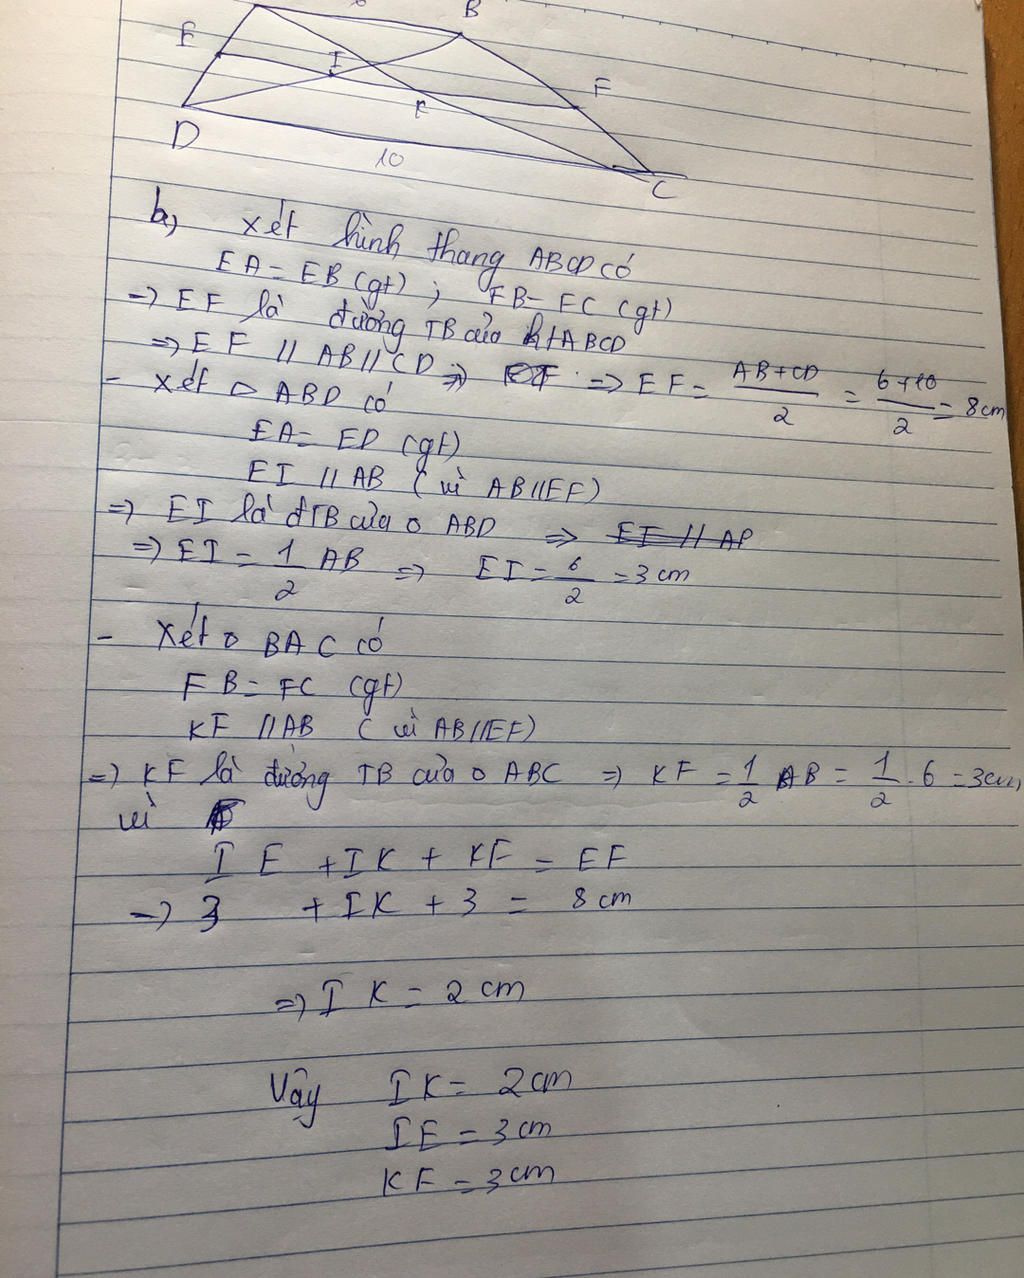 6
B
E
I
F
K
D
10
C
b,
xét hình thang ABCD có
EA = EB (gt) ; FB = FC (gt)
=> EF là đường TB của ht ABCD
=> EF // AB // CD => => EF = AB+CD / 2 = 6+10 / 2 = 8 cm
- xét △ ABD có
EA = ED (gt)
EI // AB ( vì AB//EF)
=> EI là đTB của △ ABD => EI // AP
=> EI = 1/2 AB => EI = 6/2 = 3 cm
- Xét △ BAC có
FB = FC (gt)
KF // AB ( vì AB//EF)
=> KF là đường TB của △ ABC => KF = 1/2 AB = 1/2 . 6 = 3cm
vì
IE + IK + KF = EF
=> 3 + IK + 3 = 8 cm
=> IK = 2 cm
Vậy IK = 2cm
IE = 3cm
KF = 3cm